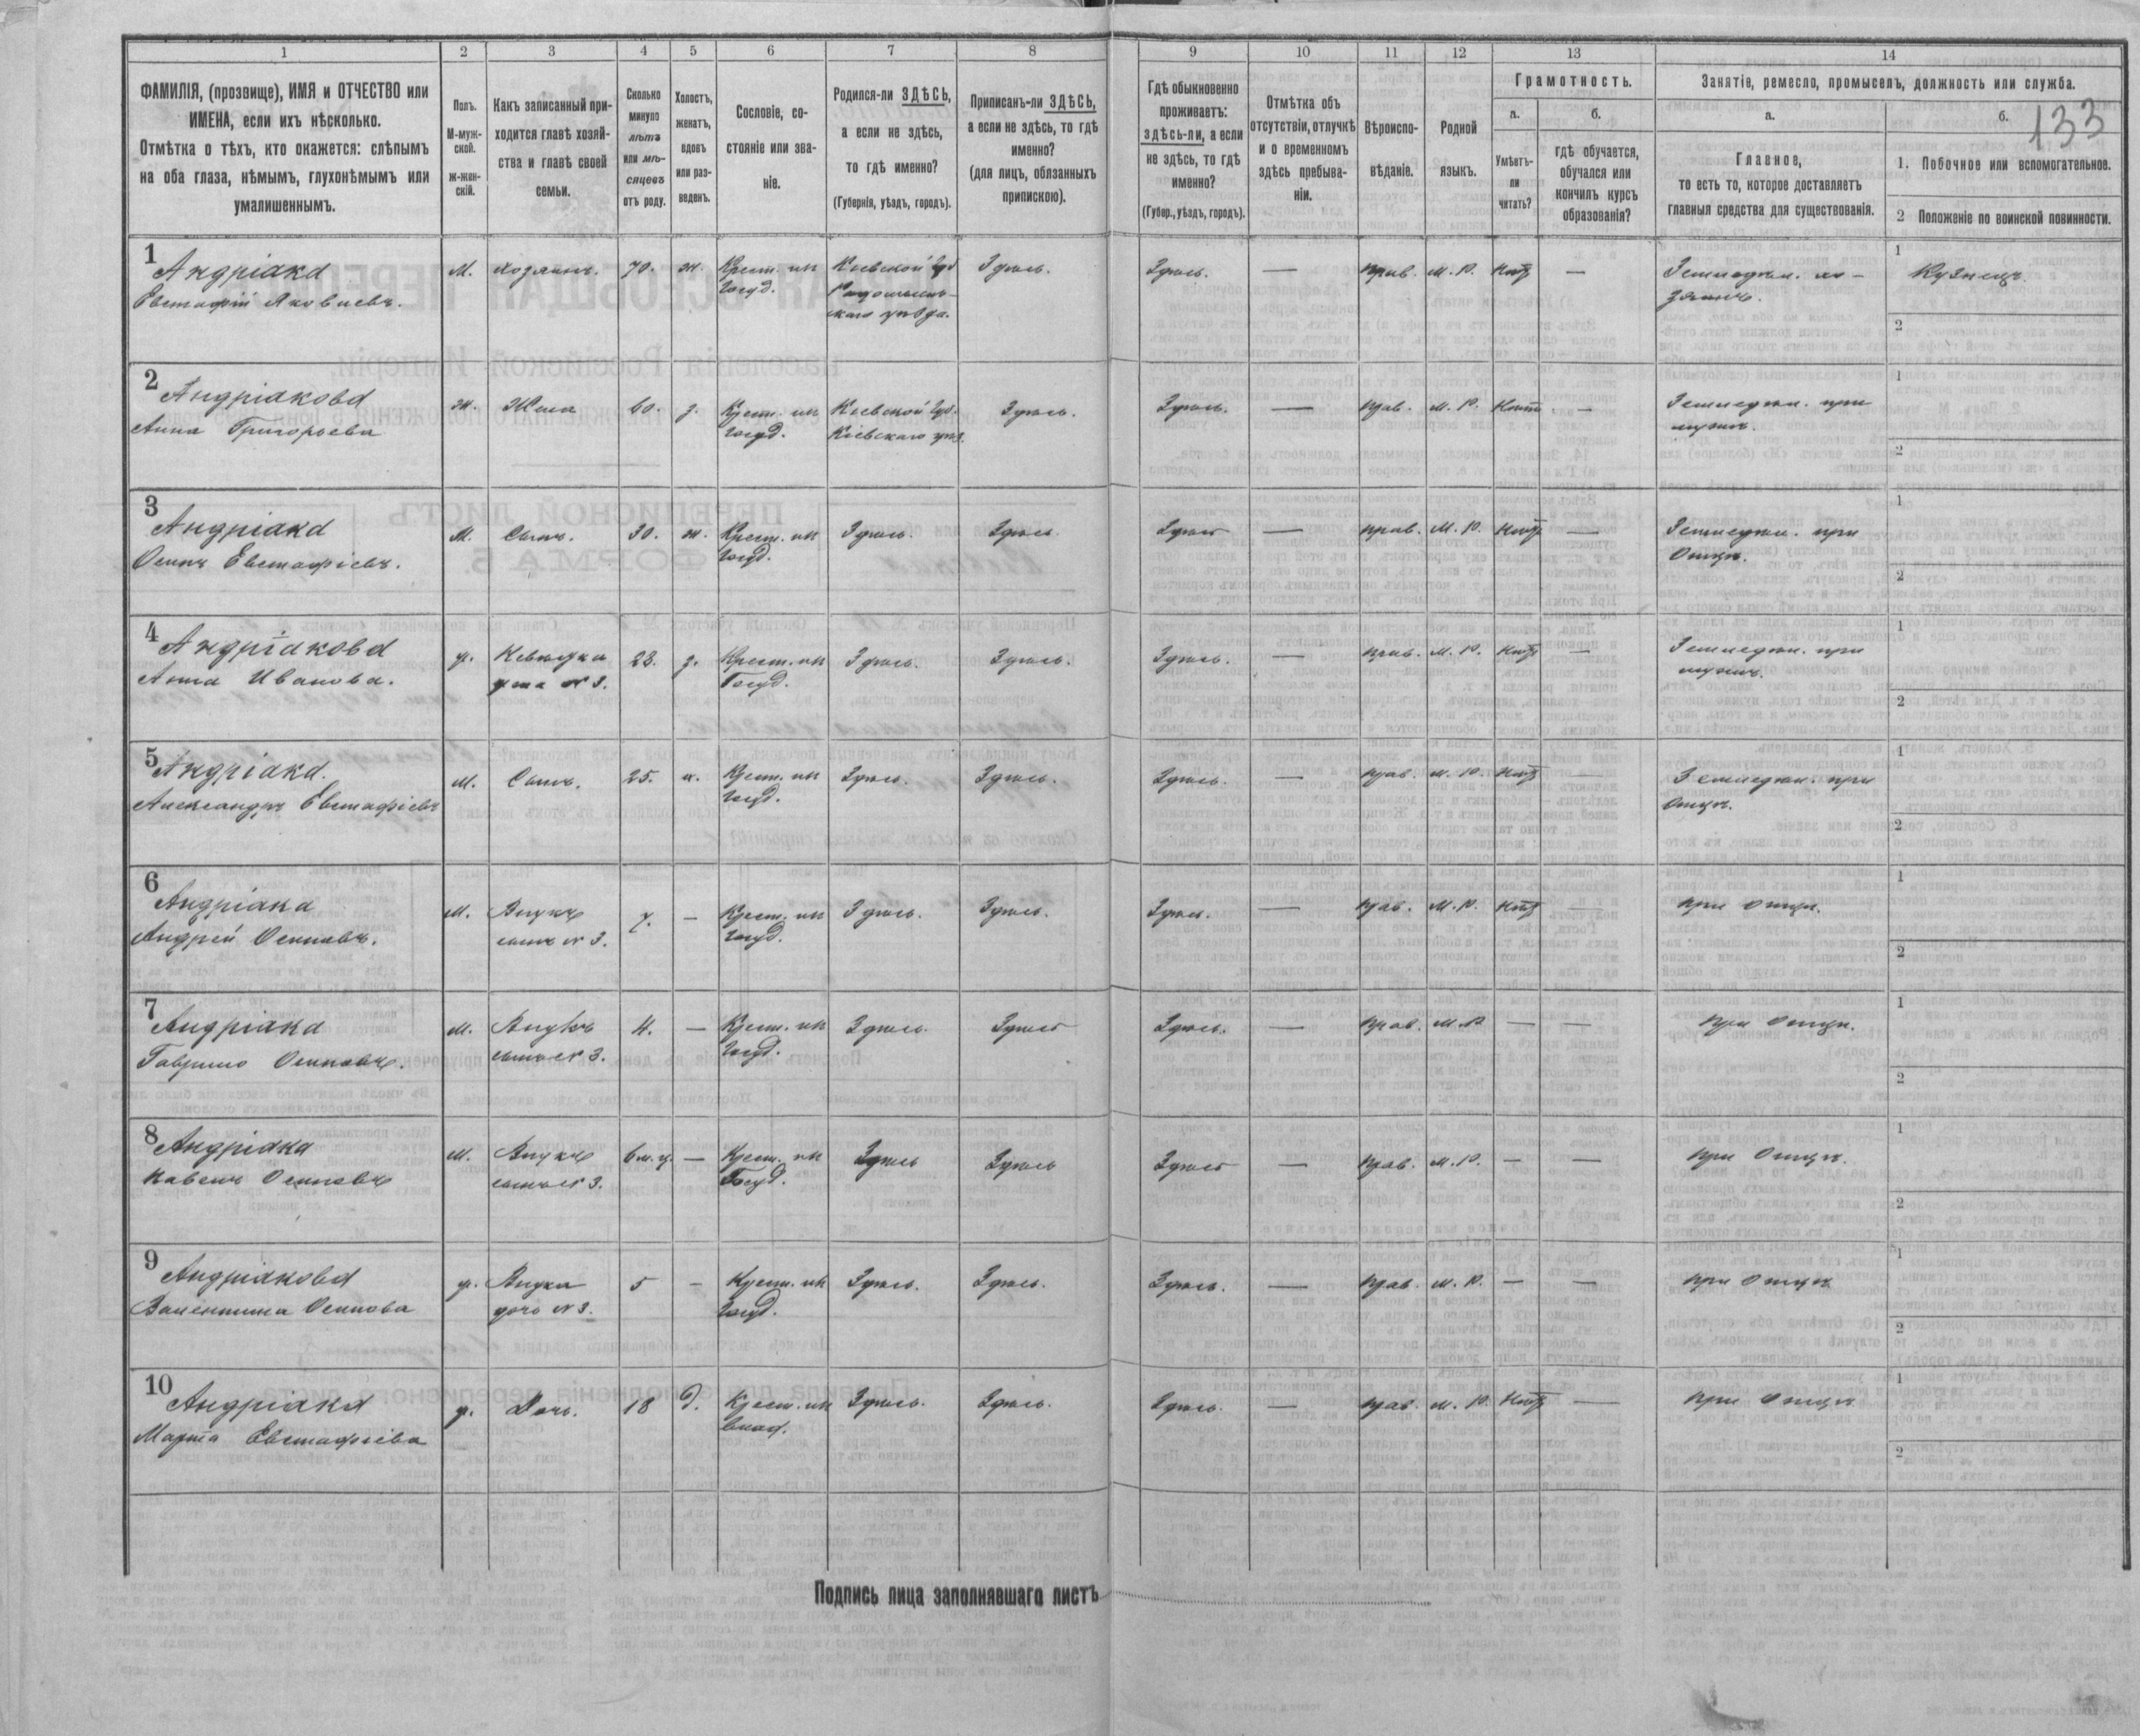 1 2 3 4 5 6 7 8 9 10 11 12 13 14
133
ФАМИЛІЯ, (прозвище), ИМЯ и ОТЧЕСТВО или
ИМЕНА, если ихъ нѣсколько.
Отмѣтка о тѣхъ, кто окажется: слѣпымъ
на оба глаза, нѣмымъ, глухонѣмымъ или
умалишеннымъ.
Полъ.
М-муж-
ской.
ж-жен-
скій.
Какъ записанный при-
ходится главѣ хозяй-
ства и главѣ своей
семьи.
Сколько
минуло
лѣтъ
или мѣ-
сяцевъ
отъ роду.
Холостъ,
женатъ,
вдовъ
или раз-
веденъ.
Сословіе, со-
стояніе или зва-
ніе.
Родился-ли ЗДѢСЬ,
а если не здѣсь,
то гдѣ именно?
(Губернія, уѣздъ, городъ).
Приписанъ-ли ЗДѢСЬ,
а если не здѣсь, то гдѣ
именно?
(для лицъ, обязанныхъ
припискою).
Гдѣ обыкновенно
проживаетъ:
здѣсь-ли, а если
не здѣсь, то гдѣ
именно?
(Губер., уѣздъ, городъ).
Отмѣтка объ
отсутствіи, отлучкѣ
и о временномъ
здѣсь пребыва-
ніи.
Вѣроиспо-
вѣданіе.
Родной
языкъ.
Грамотность.
а.
Умѣетъ-
ли
читать?
б.
гдѣ обучается,
обучался или
кончилъ курсъ
образованія?
Занятіе, ремесло, промыселъ, должность или служба.
а.
Главное,
то есть то, которое доставляетъ
главныя средства для существованія.
б.
1. Побочное или вспомогательное.
2 Положеніе по воинской повинности.
1
Андріака М. хозяинъ. 70. ж. Крест. из Кіевской Губ Здѣсь. Здѣсь. — прав. М. Р. Нѣтъ — Земледѣл. хо- 1 Кузнецъ.
Евстафій Яковлевъ. Госуд. Радомысль- зяинъ.
скаго уѣзда. 2
2
Андріакова ж. Жена 60. з. Крест. из Кіевской Губ. Здѣсь. Здѣсь. — прав. М. Р. Нѣтъ. — Земледѣл. при 1
Анна Григорьева Госуд. Кіевскаго уѣз. мужѣ. 2
3
Андріака М. Сынъ. 30. ж. Крест. из Здѣсь. Здѣсь. Здѣсь — прав. М. Р. Нѣтъ — Земледѣл. при 1
Осипъ Евстафіевъ. Госуд. Отцѣ. 2
4
Андріакова Невѣстка 28. з. Крест. из Здѣсь. Здѣсь. Здѣсь. — прав. М. Р. Нѣтъ — Земледѣл. при 1
Анна Иванова. жена № 3. Госуд. мужѣ. 2
5
Андріака. М. Сынъ. 25. х. Крест. из Здѣсь. Здѣсь. Здѣсь. — прав. М. Р. Нѣтъ — Земледѣл. при 1
Александръ Евстафіевъ Госуд. Отцѣ. 2
6
Андріака М. Внукъ 7. — Крест. из Здѣсь. Здѣсь. Здѣсь. — прав. М. Р. Нѣтъ — при Отцѣ. 1
Андрей Осиповъ. сынъ № 3. Госуд. 2
7
Андріака М. Внукъ 4. — Крест. из Здѣсь. Здѣсь Здѣсь. — прав. М. Р — — при Отцѣ. 1
Гаврило Осиповъ. сынъ № 3. Госуд. 2
8
Андріака М. Внукъ 6 м.ц. — Крест. из Здѣсь Здѣсь Здѣсь — прав. М. Р. — — при Отцѣ. 1
Павелъ Осиповъ сынъ № 3. Госуд. 2
9
Андріакова Внука 5 — Крест. из Здѣсь. Здѣсь. Здѣсь. — прав. М. Р. — — при Отцѣ 1
Валентина Осипова дочь № 3. Госуд. 2
10
Андріака Дочь. 18 д. Крест. из Здѣсь. Здѣсь. Здѣсь. — прав. М. Р. Нѣтъ — при Отцѣ 1
Марта Евстафіева влад. 2
Подпись лица заполнявшаго листъ